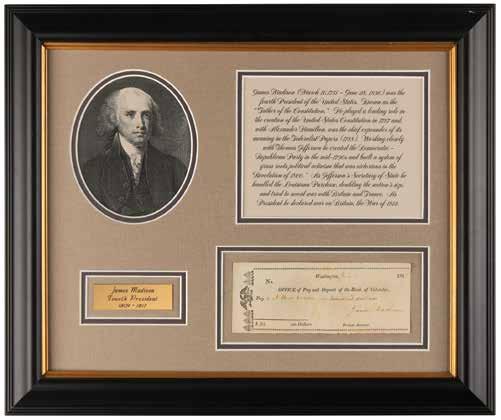 James Madison (March 16, 1751 - June 28, 1836) was the
fourth President of the United States. Known as the
"Father of the Constitution." He played a leading role in
the creation of the United States Constitution in 1787 and,
with Alexander Hamilton, was the chief expounder of its
meaning in the Federalist Papers (1788). Working closely
with Thomas Jefferson he created the Democratic-
Republican Party in the mid-1790s and built a system of
grass roots political activism that was victorious in the
Revolution of 1800." As Jefferson's Secretary of State he
handled the Louisiana Purchase, doubling the nation's size,
and tried to avoid war with Britain and France. As
President he declared war on Britain, the War of 1812.
James Madison
Fourth President
1809 - 1817
Washington,
No.
OFFICE of Pay and Deposit of the Bank of Columbia,
Pay
James Madison
Dollars